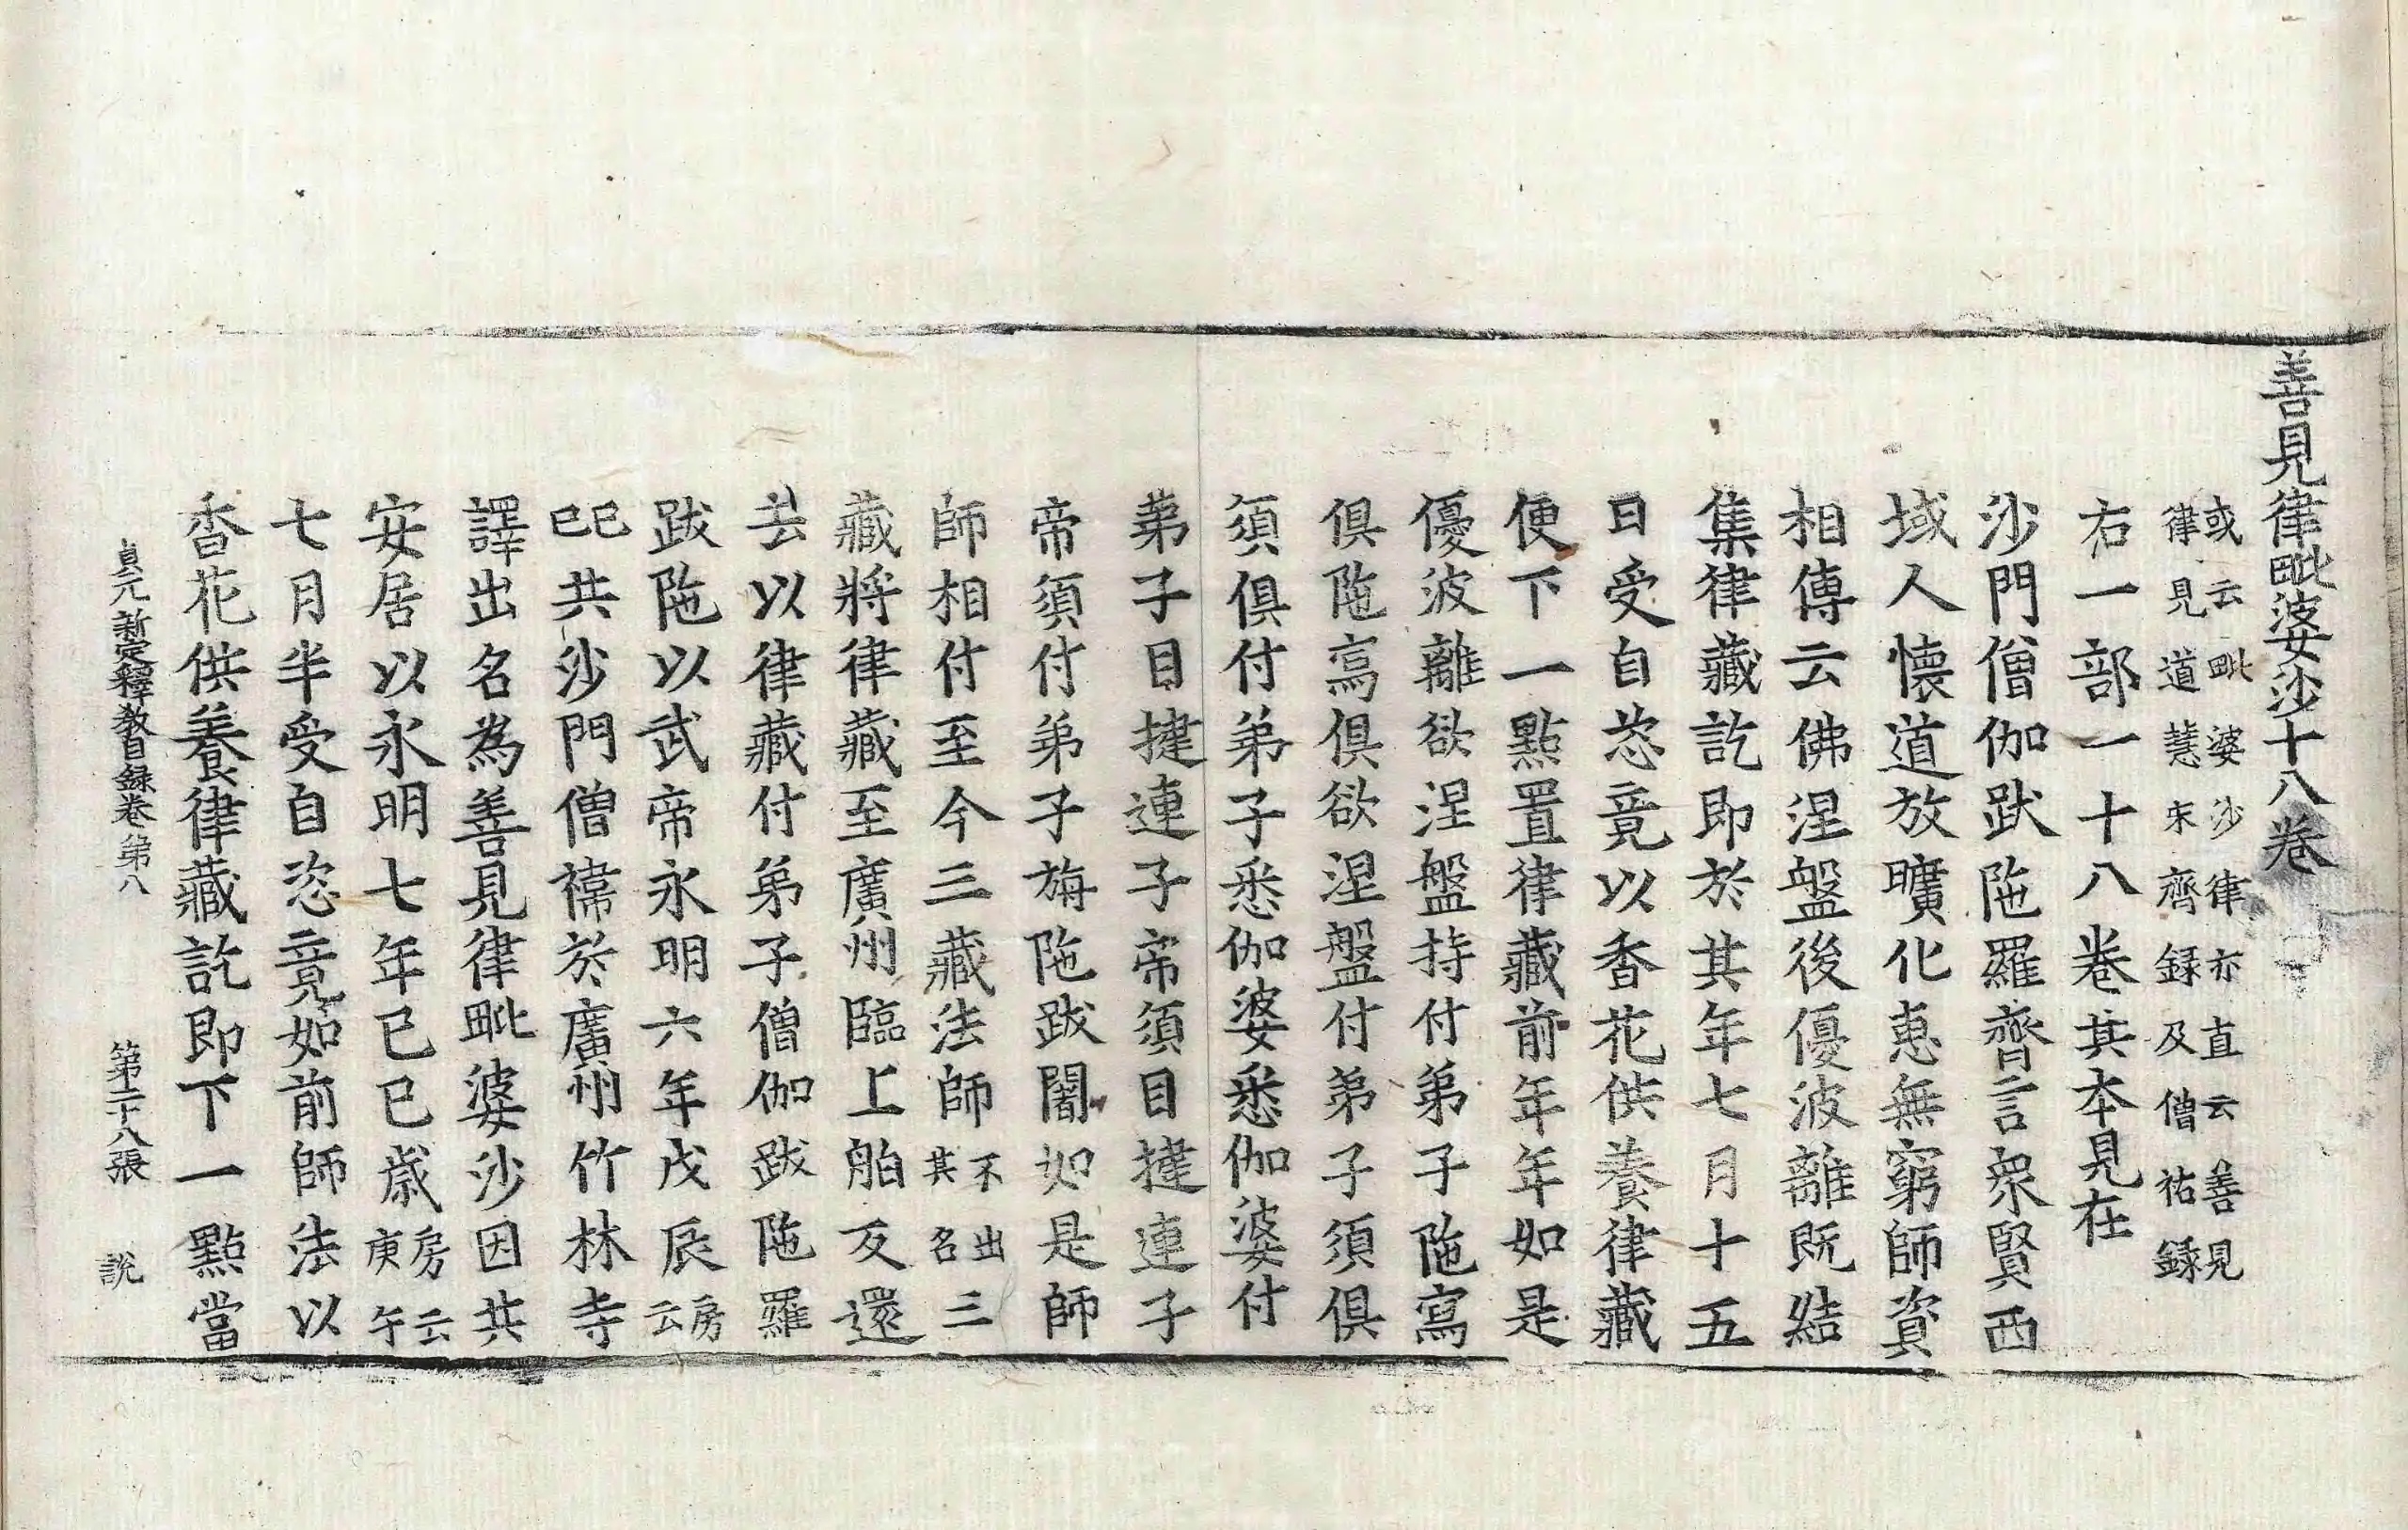 善見律毗婆沙十八卷
或云毗婆沙律亦直云善見
律見道慧宋齊録及僧祐録
右一部一十八卷其本見在
沙門僧伽跋陁羅齊言衆賢西
域人懷道放曠化惠無窮師資
相傳云佛涅盤後優波離既結
集律藏訖即於其年七月十五
日受自恣竟以香花供養律藏
便下一點置律藏前年年如是
優波離欲涅盤持付弟子陁寫
俱陁寫俱欲涅盤付弟子須俱
須俱付弟子悉伽婆悉伽婆付
弟子目揵連子帝須目揵連子
帝須付弟子旃陁跋闍如是師
師相付至今三藏法師不出三
其名
藏將律藏至廣州臨上舶反還
去以律藏付弟子僧伽跋陁羅
跋陁以武帝永明六年戊辰房
云
己巳共沙門僧禕於廣州竹林寺
譯出名為善見律毗婆沙因共
安居以永明七年己巳歲房云
庚午
七月半受自恣竟如前師法以
香花供養律藏訖即下一點當
貞元新定釋教目録卷第八 第二十八張 說